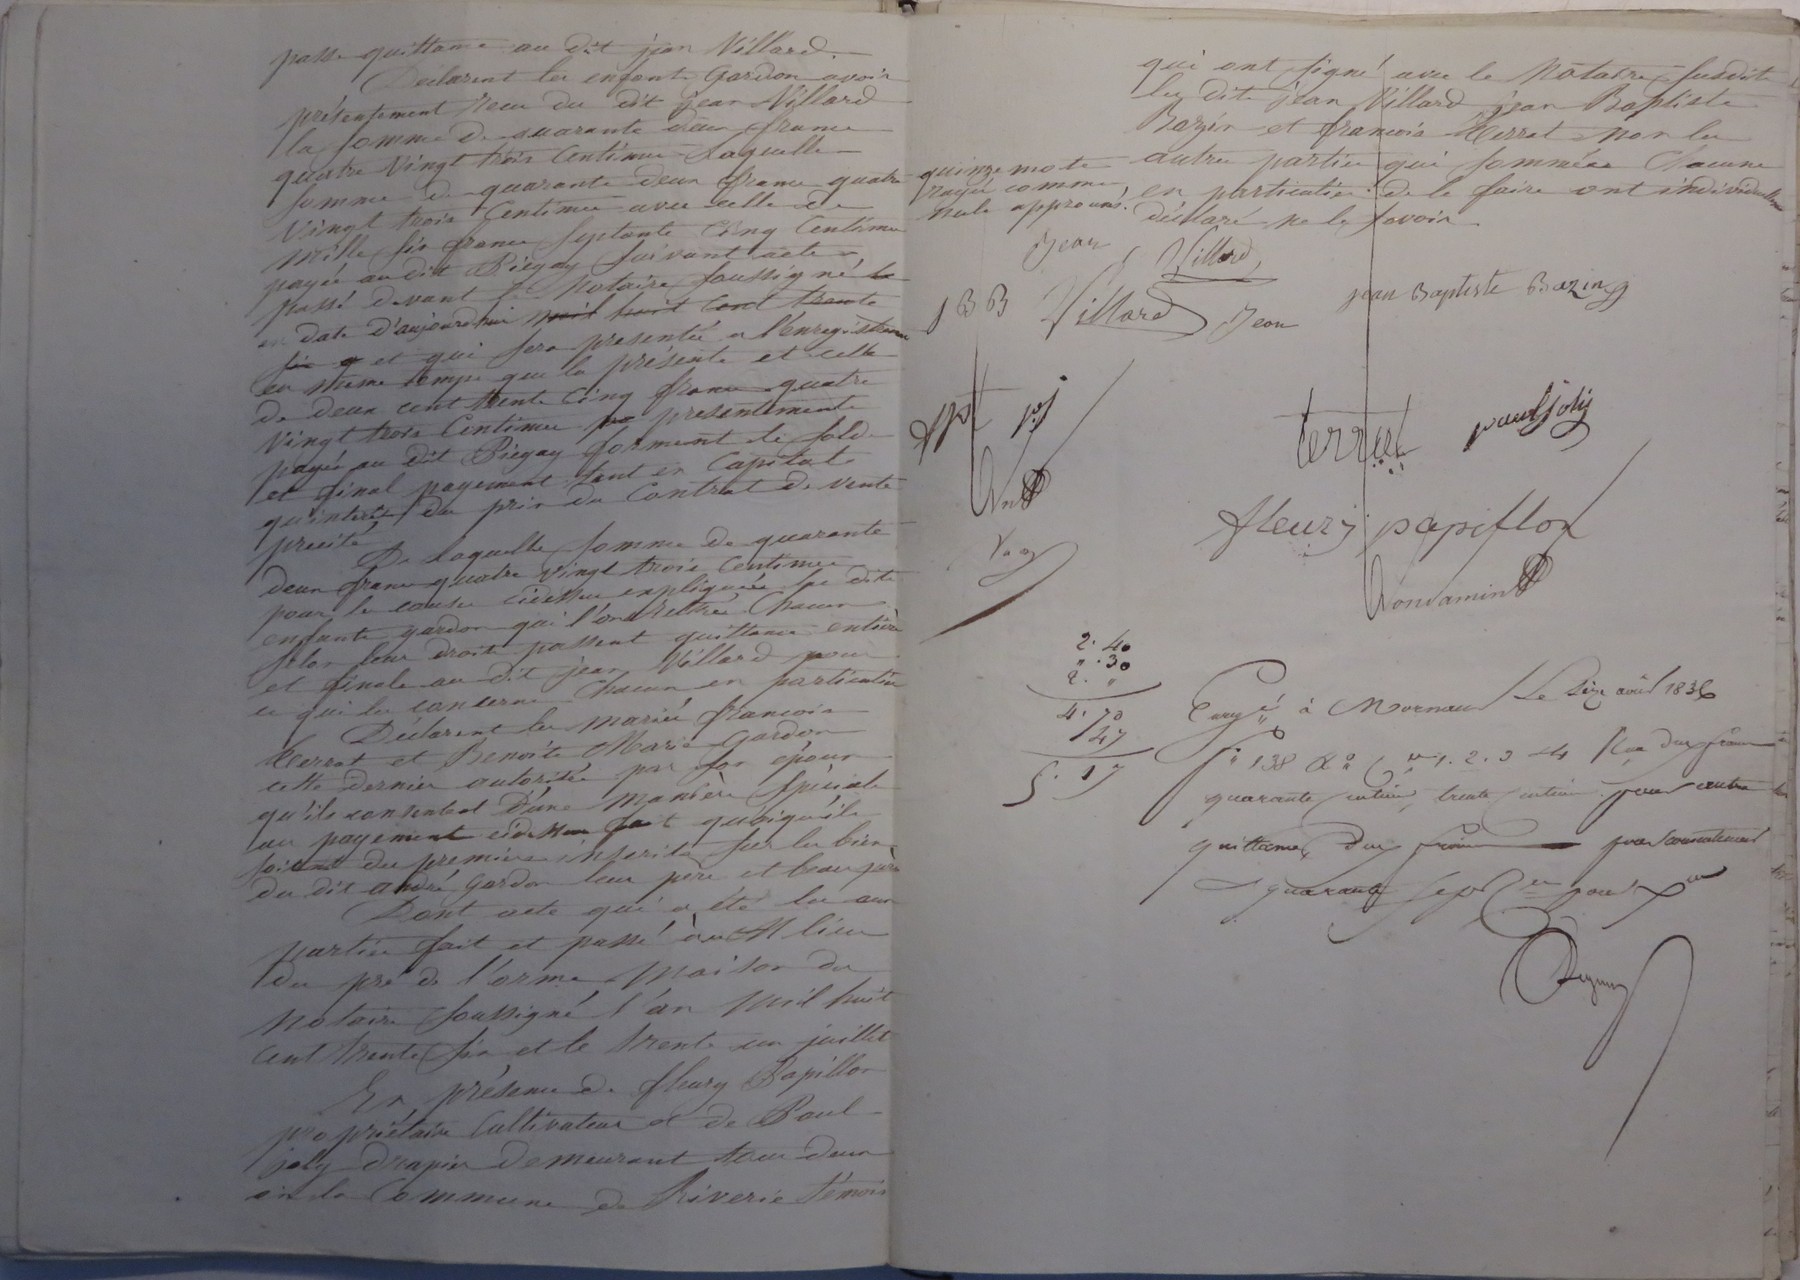 passe quittance au dit jean Villard
Déclarent les enfants Gardon avoir
présentement recu du dit jean Villard
la somme de quarante deux francs
quatre vingt trois centimes laquelle
somme de quarante deux francs quatre
vingt trois centimes avec celle de
mille six francs septante cinq centimes
payée au dit Piegay suivant acte
passé devant le notaire soussigné le
en date d'aujourdhui mil huit cent trente
six et qui sera presentée a l'enregistrement
en même temps que la présente et celle
de deux cent trente cinq francs quatre
vingt trois centimes presentement
payée au dit Piegay forment le solde
et final payement tant en capitale
qu'intérêts du prix du contrat de vente
précité
De laquelle somme de quarante
deux francs quatre vingt trois centimes
pour les causes cidessus expliquées les dits
enfants gardon qui l'ont retiré chacun
selon leur droit passent quittance entière
et finale au dit jean Villard pour
ce qui les concerne chacun en particulier
Déclarent les mariés francois
Terrat et Benoite Marie Gardon
cette dernier autorisée par son époux
qu'ils consentent d'une manière spéciale
au payement cidessus fait quoiqu'ils
soient du premiere inscrits sur les biens
du dit andré gardon leur père et beau père
Dont acte qui a été lu aux
parties fait et passé au lieu
du pré de l'orme maison du
notaire soussigné l'an mil huit
cent trente six et le trente un juillet
En présence de fleury Papillon
propriétaire cultivateur et de Paul
joly drapier demeurant tous deux
en la commune de Riverie témoins
qui ont signé avec le notaire susdit
les dits jean Villard jean Baptiste
Bazin et francois Terrat non les
autres parties qui sommées chacune
en particulier de le faire ont individuellement
déclaré ne le savoir
quinze mots
rayés comme
nuls approuvés
Jean Villard
J B B Villard Jean
jean Baptiste Bazin
pj
terrat paul joly
fleury papillon
2. 40
". 30
2. "
4. 70
47
5. 17
Enregé à Mornant le seize août 1836
f° 138 R° Cs 1. 2. 3 et 4 Reçu deux francs
quarante centimes, trente centimes pour autre
quittance, deux francs pour consentement
et quarante sept cmes pour